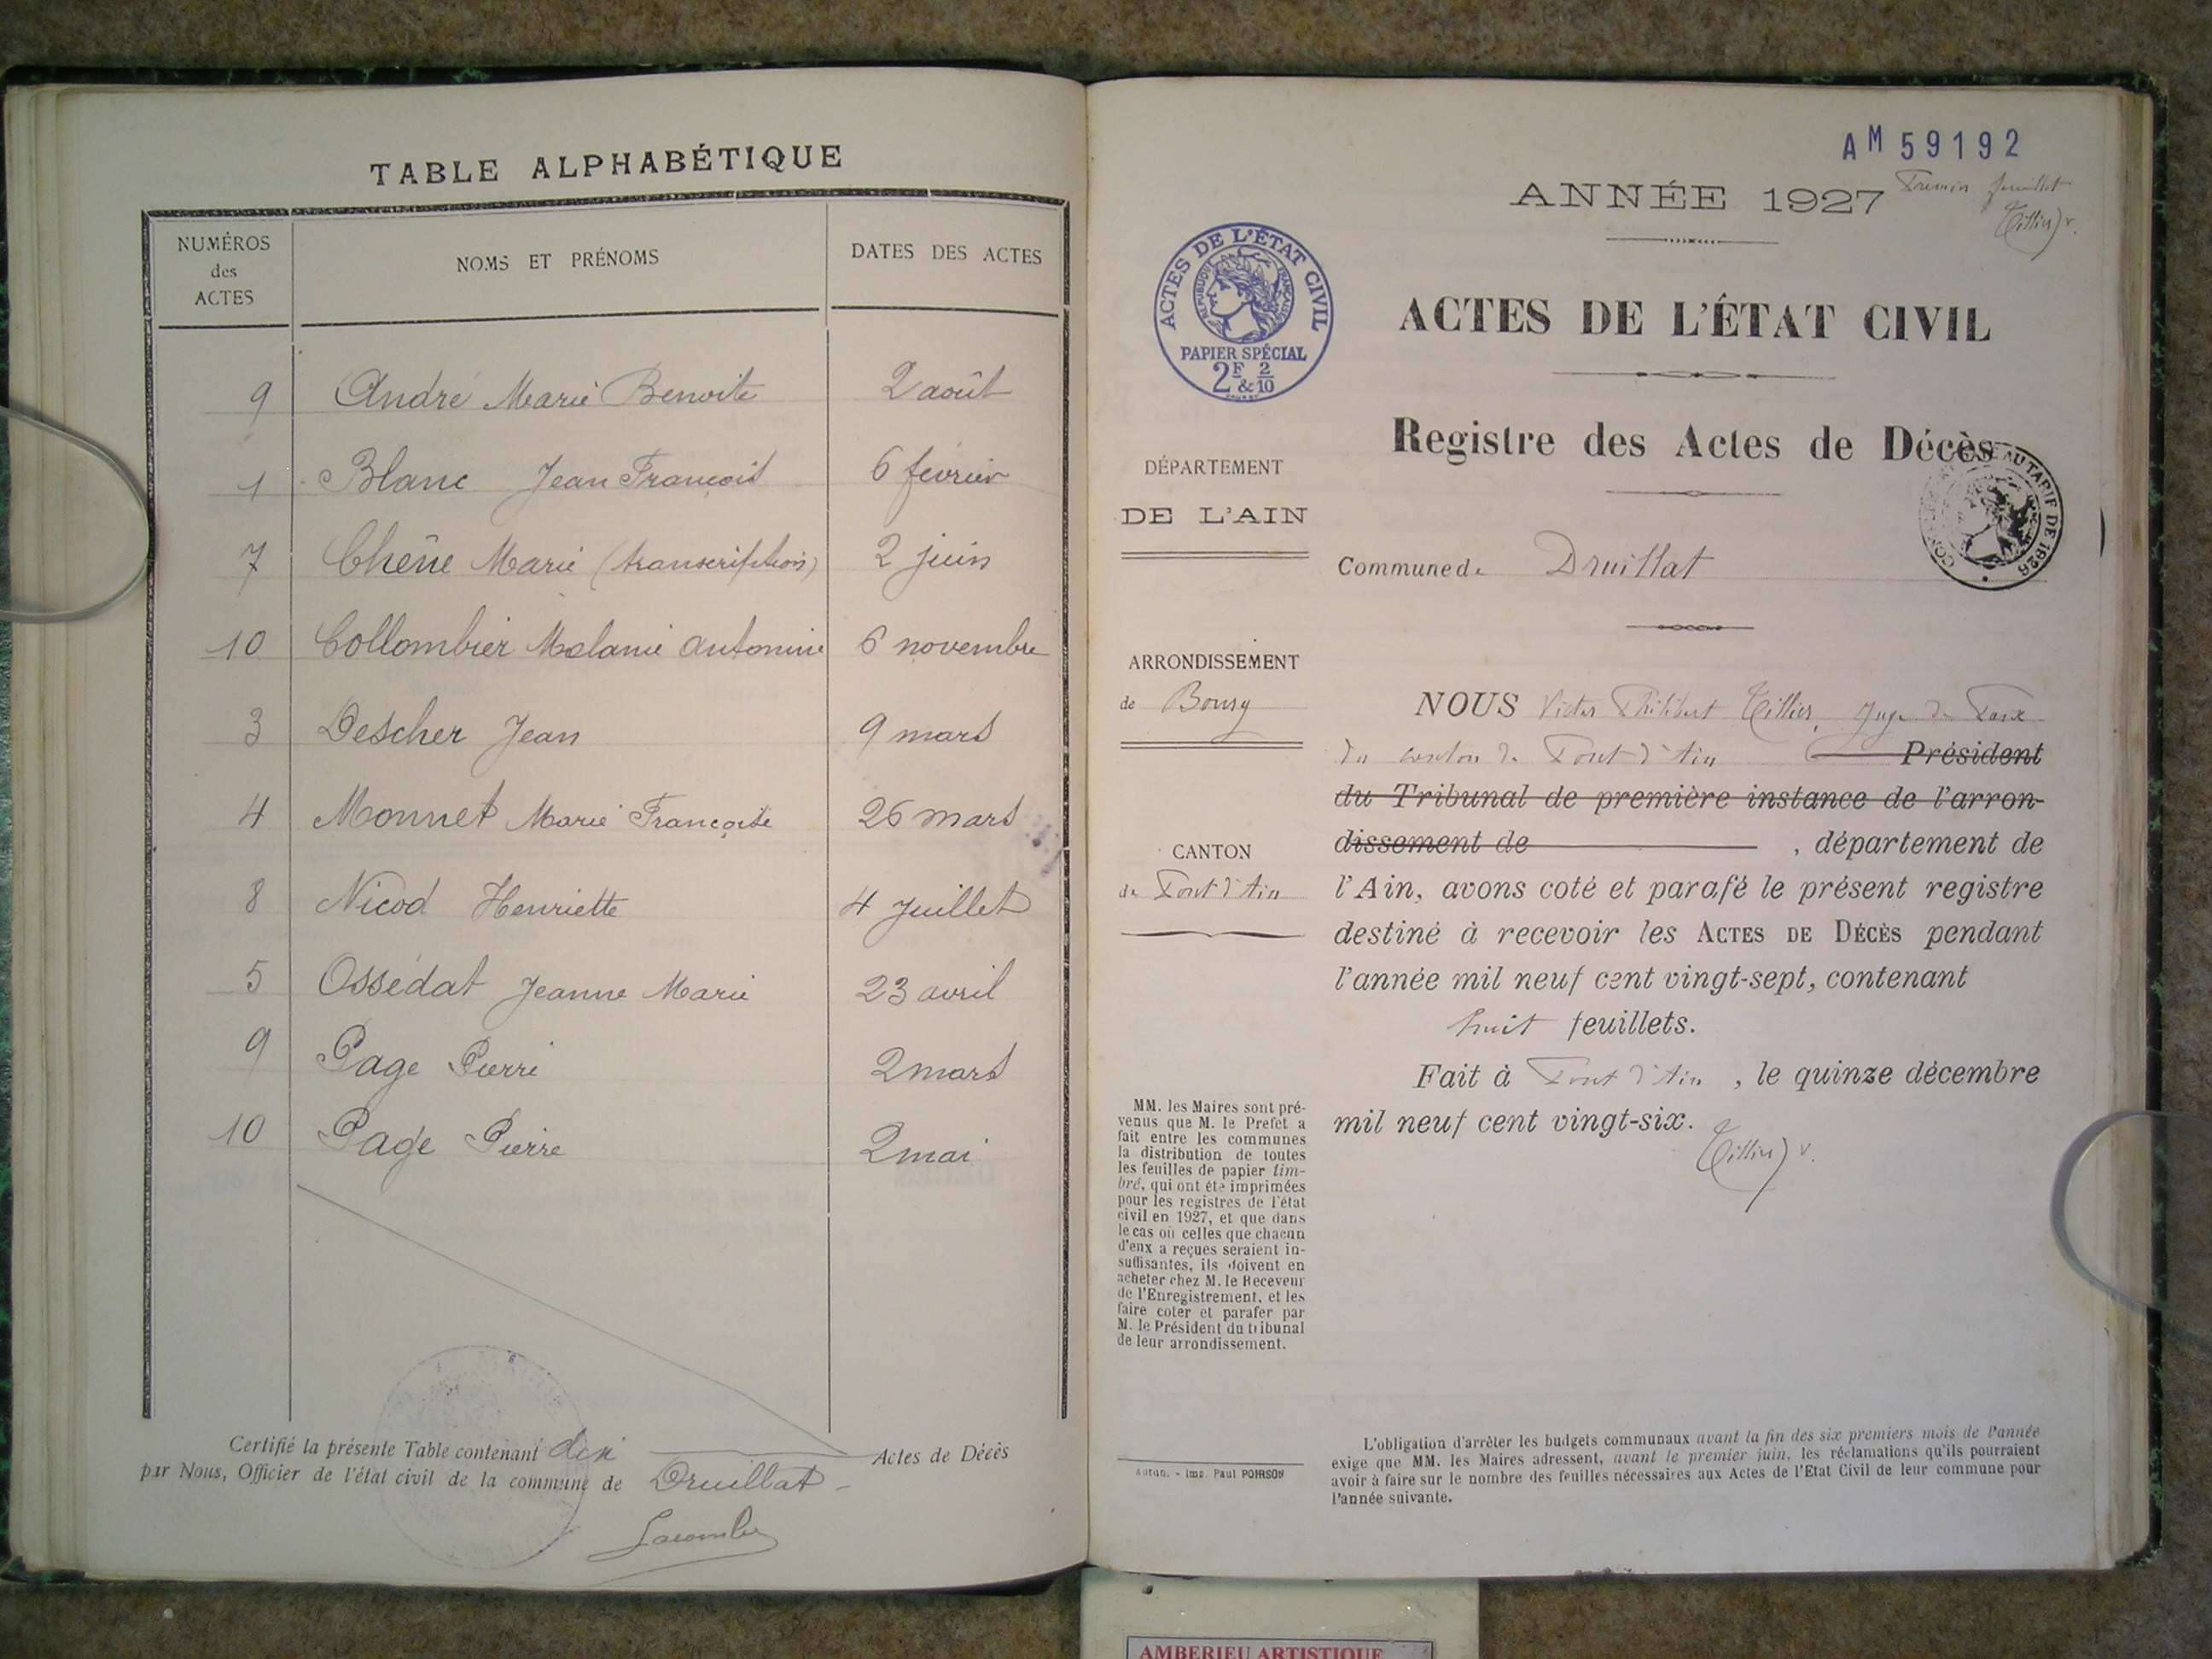 TABLE ALPHABÉTIQUE
NUMÉROS
des
ACTES
NOMS ET PRÉNOMS
DATES DES ACTES
9 André Marie Benoite 2 août
1 Blanc Jean François 6 février
7 Chêne Marie (transcription) 2 juin
10 Collombier Melanie Antonine 6 novembre
3 Descher Jean 9 mars
4 Monnet Marie Françoise 26 mars
8 Nicod Henriette 4 Juillet
5 Ossédat Jeanne Marie 23 avril
9 Page Pierre 2 mars
10 Page Pierre 2 mai
Certifié la présente Table contenant dix Actes de Décès
par Nous, Officier de l'état civil de la commune de Druillat
Lacombe
AM 59192
ANNÉE 1927
Premier feuillet
Tillier v.
ACTES DE L'ÉTAT CIVIL
RÉPUBLIQUE FRANÇAISE
PAPIER SPÉCIAL
2F & 2/10
ACTES DE L'ÉTAT CIVIL
Registre des Actes de Décès
AU TARIF DE 1926
DÉPARTEMENT
DE L'AIN
Commune de Druillat
ARRONDISSEMENT
de Bourg
CANTON
de Pont d'Ain
NOUS Victor Philibert Tillier, Juge de Paix
du canton de Pont d'Ain Président
du Tribunal de première instance de l'arron-
dissement de , département de
l'Ain, avons coté et parafé le présent registre
destiné à recevoir les ACTES DE DÉCÈS pendant
l'année mil neuf cent vingt-sept, contenant
huit feuillets.
Fait à Pont d'Ain, le quinze décembre
mil neuf cent vingt-six.
Tillier v.
MM. les Maires sont pré-
venus que M. le Prefet a
fait entre les communes
la distribution de toutes
les feuilles de papier tim-
bré, qui ont été imprimées
pour les registres de l'état
civil en 1927, et que dans
le cas où celles que chacun
d'enx a reçues seraient in-
suffisantes, ils doivent en
acheter chez M. le Receveur
de l'Enregistrement, et les
faire coter et parafer par
M. le Président du tribunal
de leur arrondissement.
Autun. - Imp. Paul POIRSON
L'obligation d'arrêter les budgets communaux avant la fin des six premiers mois de l'année
exige que MM. les Maires adressent, avant le premier juin, les réclamations qu'ils pourraient
avoir à faire sur le nombre des feuilles nécessaires aux Actes de l'Etat Civil de leur commune pour
l'année suivante.
AMBERIEU ARTISTIQUE